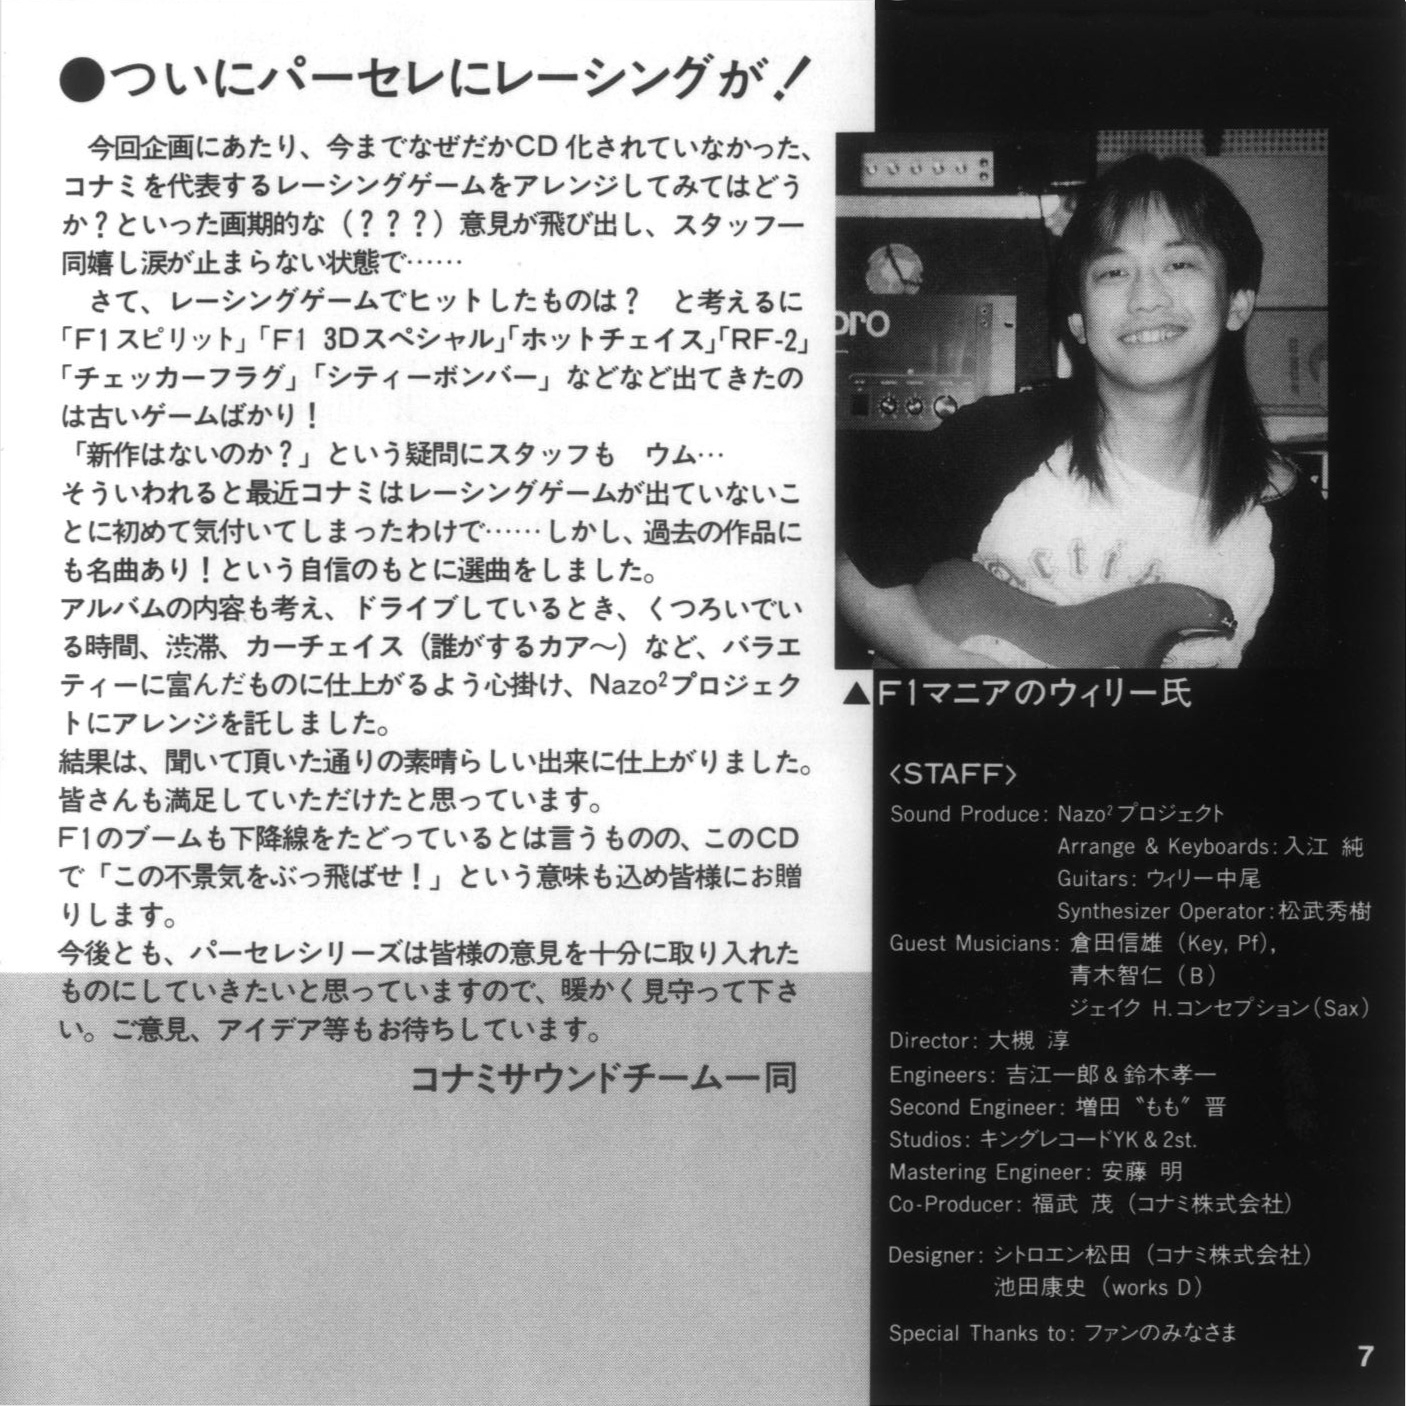 ●ついにパーセレにレーシングが！
今回企画にあたり、今までなぜだかCD 化されていなかった、
コナミを代表するレーシングゲームをアレンジしてみてはどう
か？といった画期的な（？？？）意見が飛び出し、スタッフ一
同嬉し涙が止まらない状態で……
さて、レーシングゲームでヒットしたものは？　と考えるに
「F1スピリット」「F1 3Dスペシャル」「ホットチェイス」「RF-2」
「チェッカーフラグ」「シティーボンバー」などなど出てきたの
は古いゲームばかり！
「新作はないのか？」という疑問にスタッフも　ウム…
そういわれると最近コナミはレーシングゲームが出ていないこ
とに初めて気付いてしまったわけで……しかし、過去の作品に
も名曲あり！という自信のもとに選曲をしました。
アルバムの内容も考え、ドライブしているとき、くつろいでい
る時間、渋滞、カーチェイス（誰がするカア〜）など、バラエ
ティーに富んだものに仕上がるよう心掛け、Nazo²プロジェク
トにアレンジを託しました。
結果は、聞いて頂いた通りの素晴らしい出来に仕上がりました。
皆さんも満足していただけたと思っています。
F1のブームも下降線をたどっているとは言うものの、このCD
で「この不景気をぶっ飛ばせ！」という意味も込め皆様にお贈
りします。
今後とも、パーセレシリーズは皆様の意見を十分に取り入れた
ものにしていきたいと思っていますので、暖かく見守って下さ
い。ご意見、アイデア等もお待ちしています。
コナミサウンドチーム一同
pro
▲F1マニアのウィリー氏
〈STAFF〉
Sound Produce: Nazo²プロジェクト
Arrange & Keyboards: 入江 純
Guitars: ウィリー中尾
Synthesizer Operator: 松武秀樹
Guest Musicians: 倉田信雄（Key, Pf),
青木智仁（B）
ジェイク H.コンセプション（Sax）
Director: 大槻 淳
Engineers: 吉江一郎&鈴木孝一
Second Engineer: 増田〝もも〞晋
Studios: キングレコードYK & 2st.
Mastering Engineer: 安藤 明
Co-Producer: 福武 茂（コナミ株式会社）
Designer: シトロエン松田（コナミ株式会社）
池田康史（works D）
Special Thanks to: ファンのみなさま
7